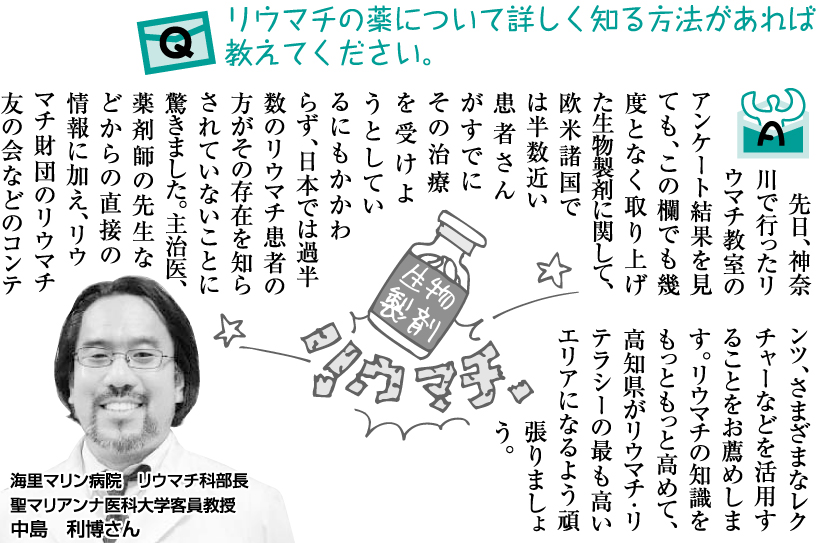 Q
リウマチの薬について詳しく知る方法があれば
教えてください。
A
先日、神奈
川で行ったリ
ウマチ教室の
アンケート結果を見
ても、この欄でも幾
度となく取り上げ
た生物製剤に関して、
欧米諸国で
は半数近い
患者さん
がすでに
その治療
を受けよ
うとしてい
るにもかかわ
らず、日本では過半
数のリウマチ患者の
方がその存在を知ら
されていないことに
驚きました。主治医、
薬剤師の先生な
どからの直接の
情報に加え、リウ
マチ財団のリウマチ
友の会などのコンテ
ンツ、さまざまなレク
チャーなどを活用す
ることをお薦めしま
す。リウマチの知識を
もっともっと高めて、
高知県がリウマチ・リ
テラシーの最も高い
エリアになるよう頑
張りましょ
う。
生物
製剤
リウマチ
海里マリン病院　リウマチ科部長
聖マリアンナ医科大学客員教授
中島　利博さん